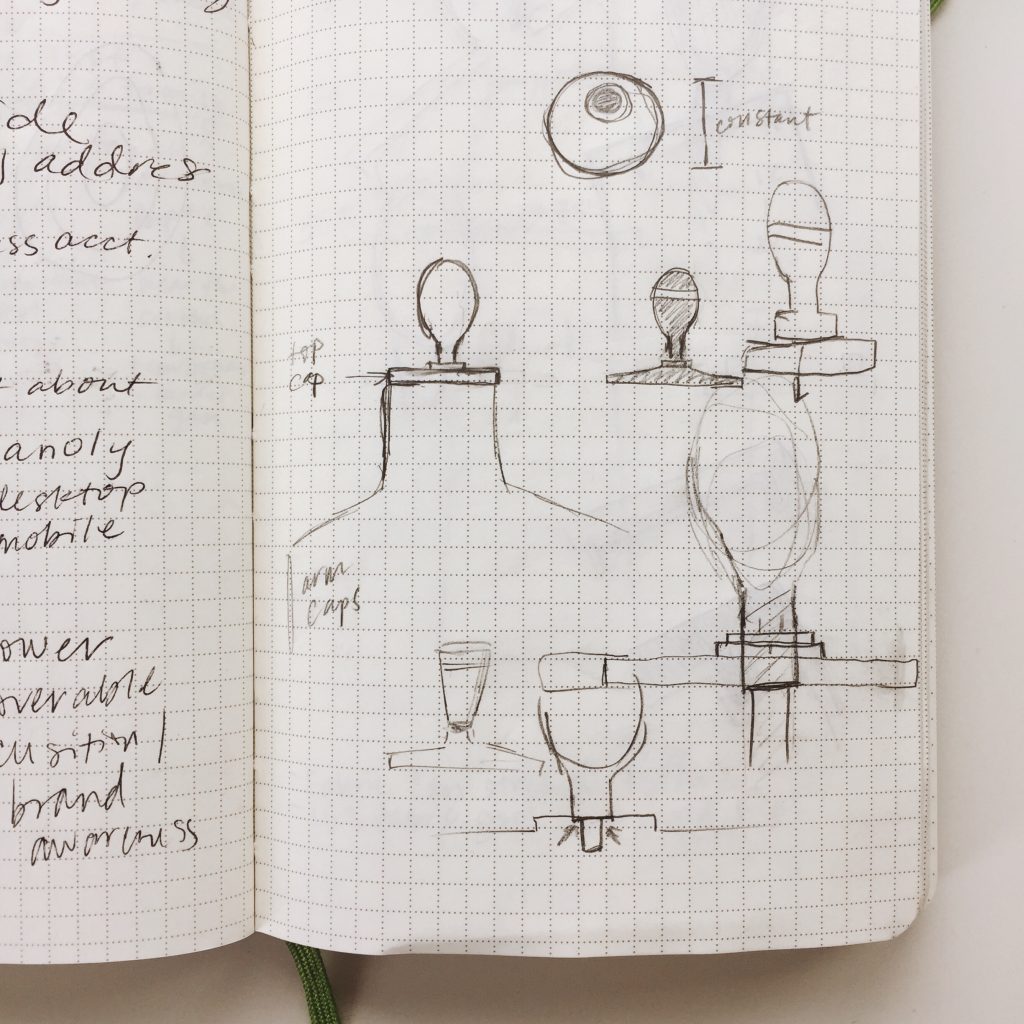 ide
addres
ss acct.
about
anoly
desktop
mobile
ower
overable
cusition/
brand
awareness
constant
top
cap
arm
caps